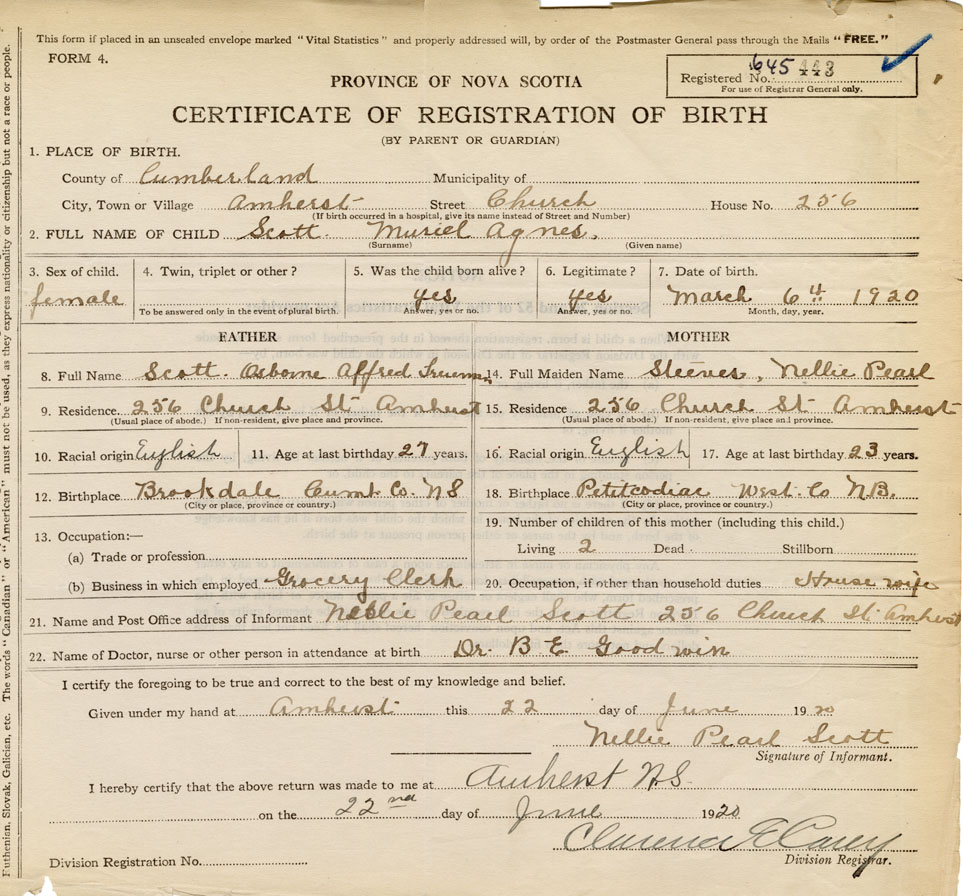 This form if placed in an unsealed envelope marked "Vital Statistics" and properly addressed will, by order of the Postmaster General pass through the Mails "FREE."
FORM 4.
Registered No. 645 443
For use of Registrar General only.
PROVINCE OF NOVA SCOTIA
CERTIFICATE OF REGISTRATION OF BIRTH
(BY PARENT OR GUARDIAN)
1. PLACE OF BIRTH.
County of Cumberland Municipality of
City, Town or Village Amherst Street Church House No. 256
(If birth occurred in a hospital, give its name instead of Street and Number)
2. FULL NAME OF CHILD Scott. Muriel Agnes.
(Surname) (Given name)
3. Sex of child. 4. Twin, triplet or other? 5. Was the child born alive? 6. Legitimate? 7. Date of birth.
female yes yes March 6th 1920
To be answered only in the event of plural birth. Answer, yes or no. Answer, yes or no. Month, day, year.
FATHER MOTHER
8. Full Name Scott. Osborne Alfred 14. Full Maiden Name Steeves, Nellie Pearl
9. Residence 256 Church St Amherst 15. Residence 256 Church St Amherst
(Usual place of abode.) If non-resident, give place and province. (Usual place of abode.) If non-resident, give place and province.
10. Racial origin English 11. Age at last birthday 27 years. 16. Racial origin English 17. Age at last birthday 23 years.
12. Birthplace Brookdale Cumb. Co. NS 18. Birthplace Petitcodiac West. Co N.B.
(City or place, province or country.) (City or place, province or country.)
19. Number of children of this mother (including this child.)
13. Occupation:—
(a) Trade or profession Living 2 Dead Stillborn
(b) Business in which employed Grocery Clerk 20. Occupation, if other than household duties House wife
21. Name and Post Office address of Informant Nellie Pearl Scott 256 Church St. Amherst
22. Name of Doctor, nurse or other person in attendance at birth Dr. B E Goodwin
I certify the foregoing to be true and correct to the best of my knowledge and belief.
Given under my hand at Amherst this 22 day of June 1920
Nellie Pearl Scott
Signature of Informant.
I hereby certify that the above return was made to me at Amherst N.S.
on the 22nd day of June 1920
Clarence E Casey
Division Registrar.
Division Registration No.
Ruthenian, Slovak, Galician, etc. The words "Canadian" or "American" must not be used, as they express nationality or citizenship but not a race or people.